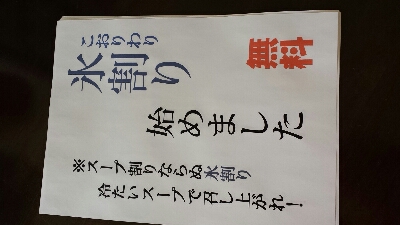 こおりわり
氷割り
無料
始めました
※スープ割りならぬ氷割り
冷たいスープで召し上がれ！